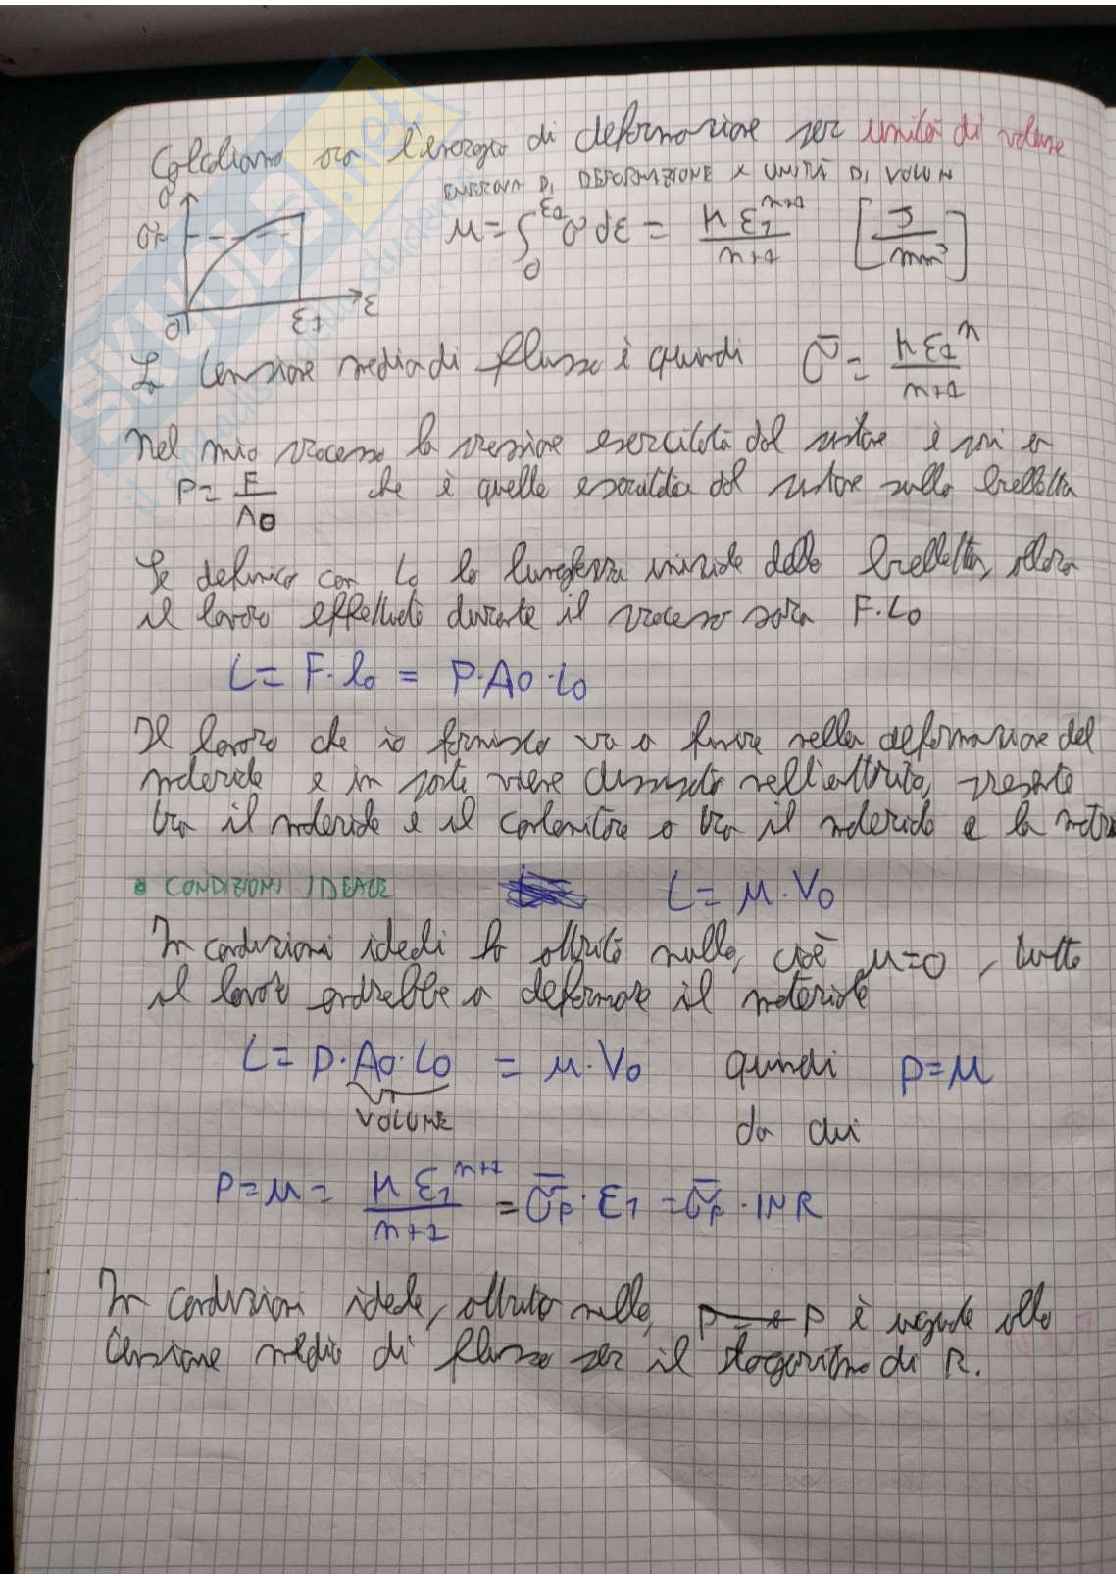 Calcoliamo ora l'energia di deformazione per unità di volume
ENERGIA DI DEFORMAZIONE X UNITÀ DI VOLUM
σ
u = ∫₀^ε1 σ dε = K ε1^(n+1) / (n+1) [J / mm³]
0 ε1 ε
La tensione media di flusso è quindi σ̄ = K ε1^n / (n+1)
Nel mio processo la pressione esercitata dal pistone è pari a
P = F / A0 che è quella esercitata dal pistone sulla billetta
Se definisco con L0 la lunghezza iniziale della billetta, allora
il lavoro effettuato durante il processo sarà F·L0
L = F·l0 = P·A0·L0
Il lavoro che io fornisco va a finire nella deformazione del
materiale e in parte viene dissipato nell'attrito, presente
tra il materiale e il contenitore o tra il materiale e la
CONDIZIONI IDEALE L = u·V0
In condizioni ideali ho attrito nullo, cioè μ=0, tutto
il lavoro andrebbe a deformare il materiale
L = P·A0·L0 = u·V0 quindi P=u
VOLUME da cui
P = u = K ε1^(n+1) / (n+1) = σ̄p·ε1 = σ̄p·lNR
In condizioni ideale, attrito nullo, P è uguale alla
tensione media di flusso per il logaritmo di R.